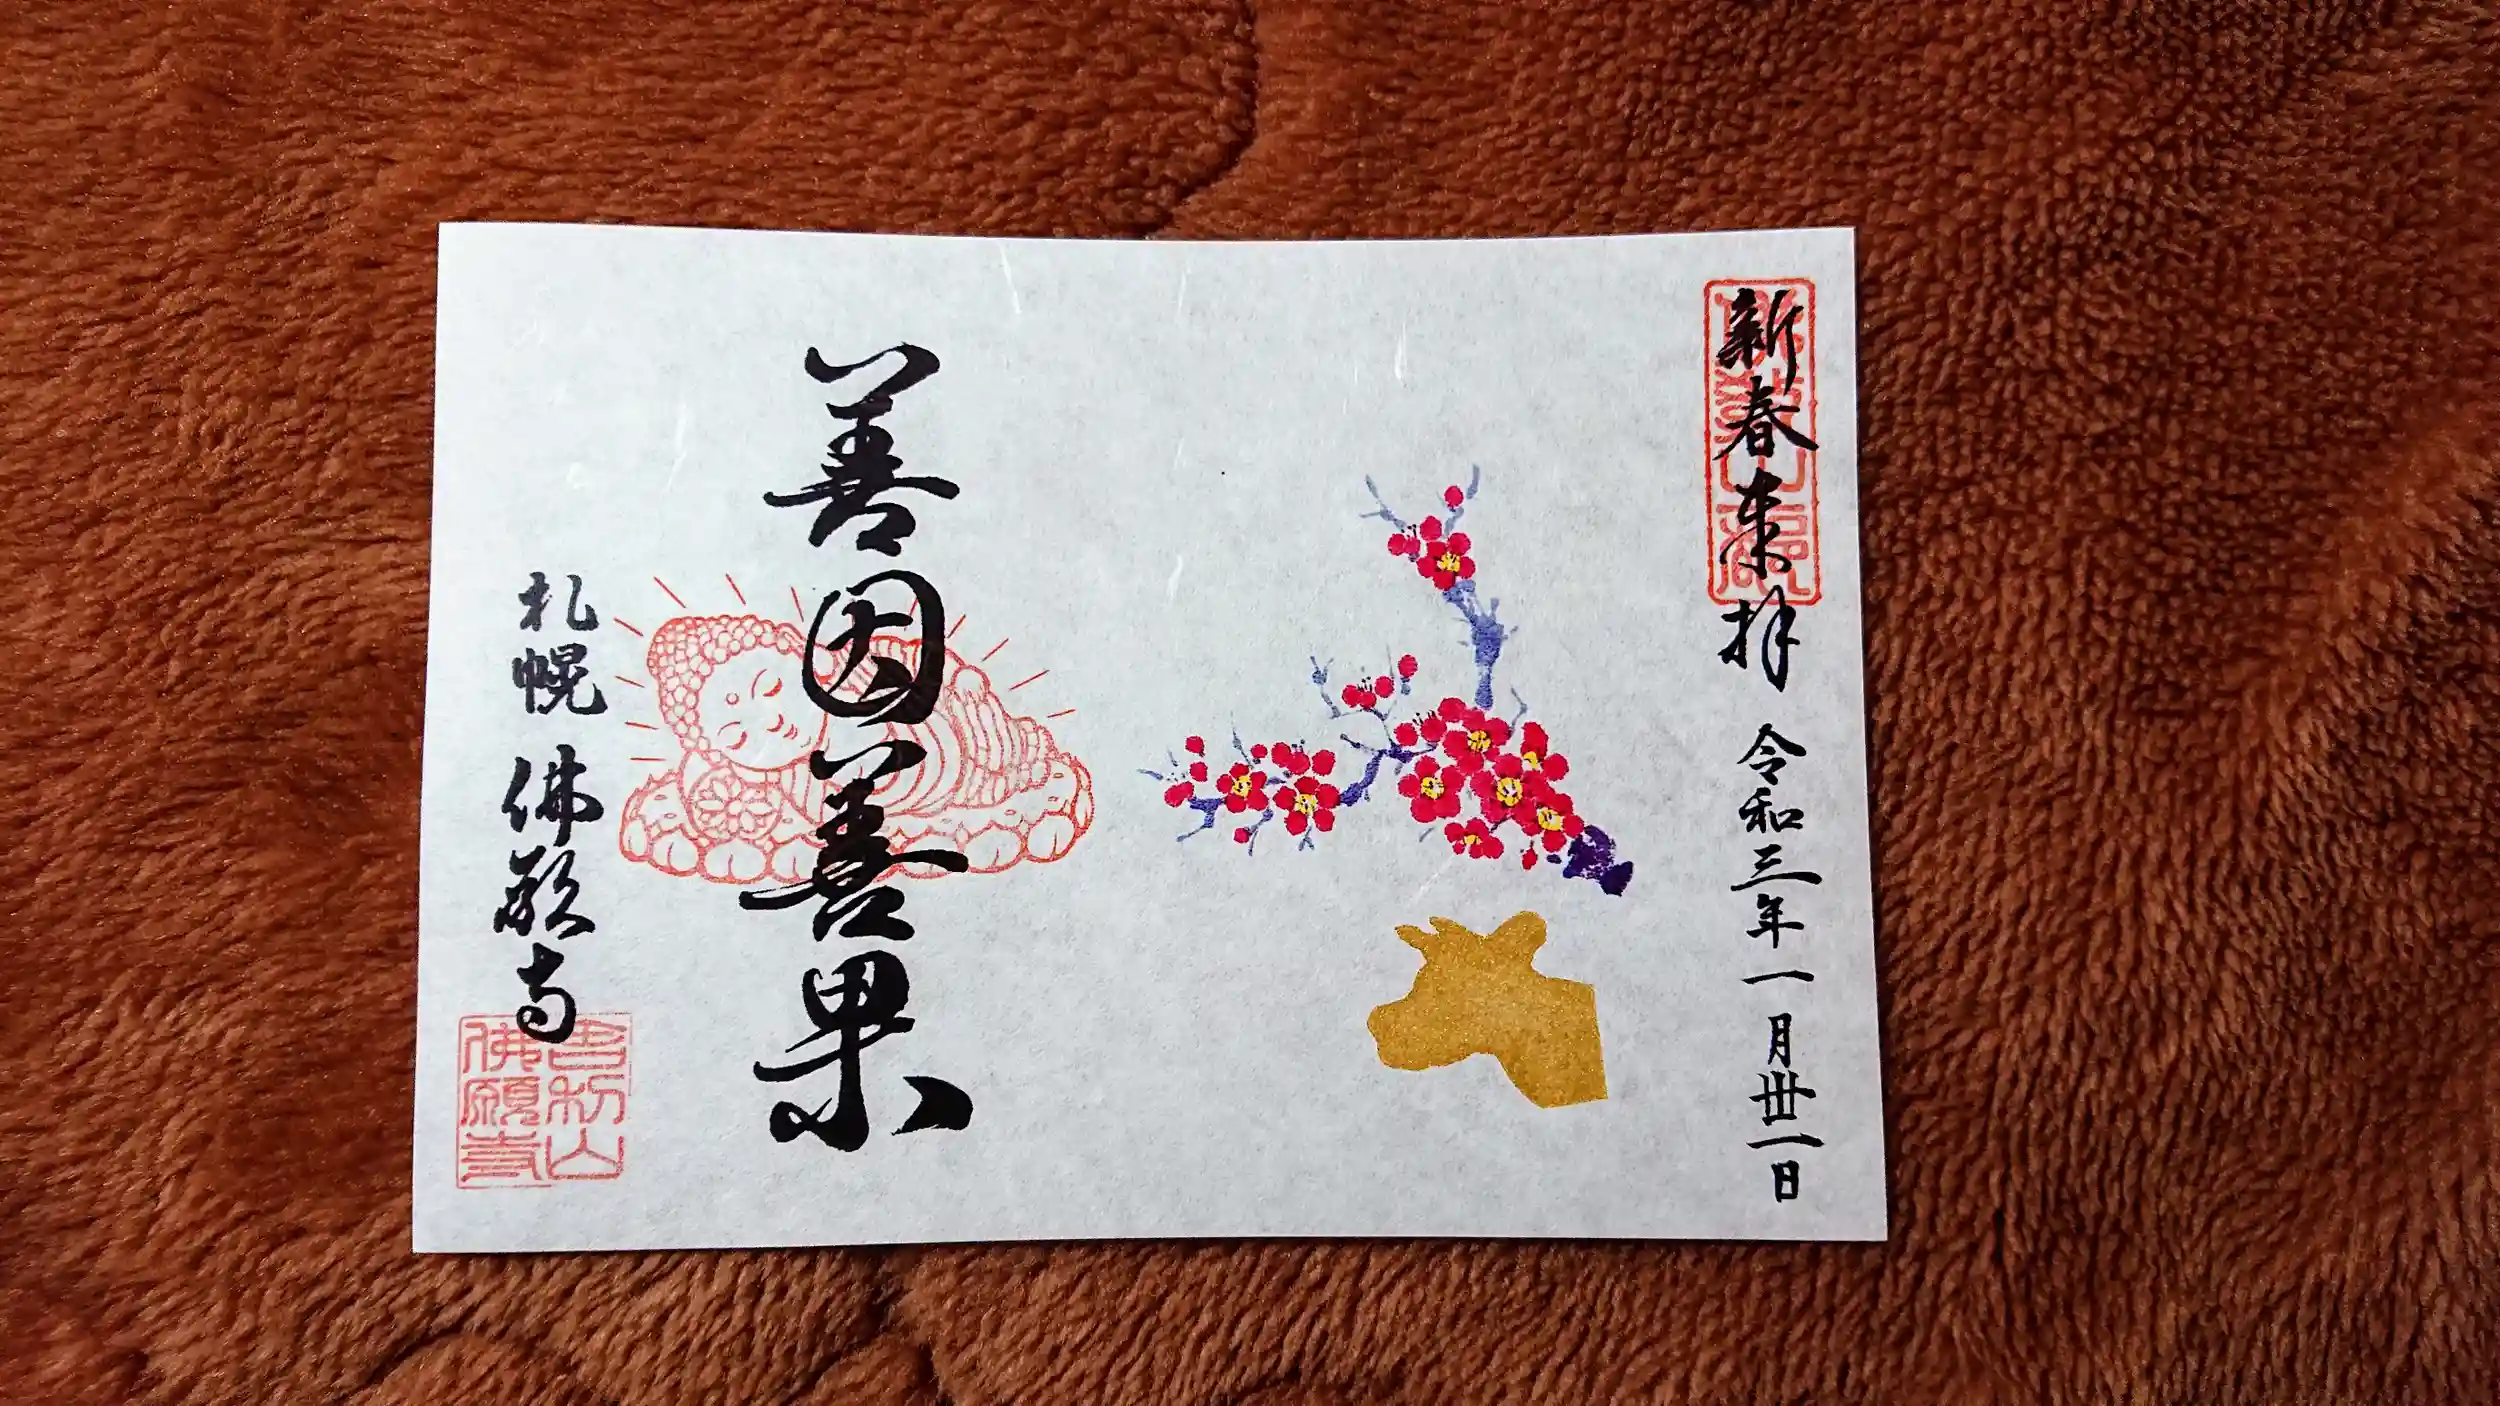 新春来拝 令和三年一月卅一日
善因善果
札幌 佛願寺
佛願寺